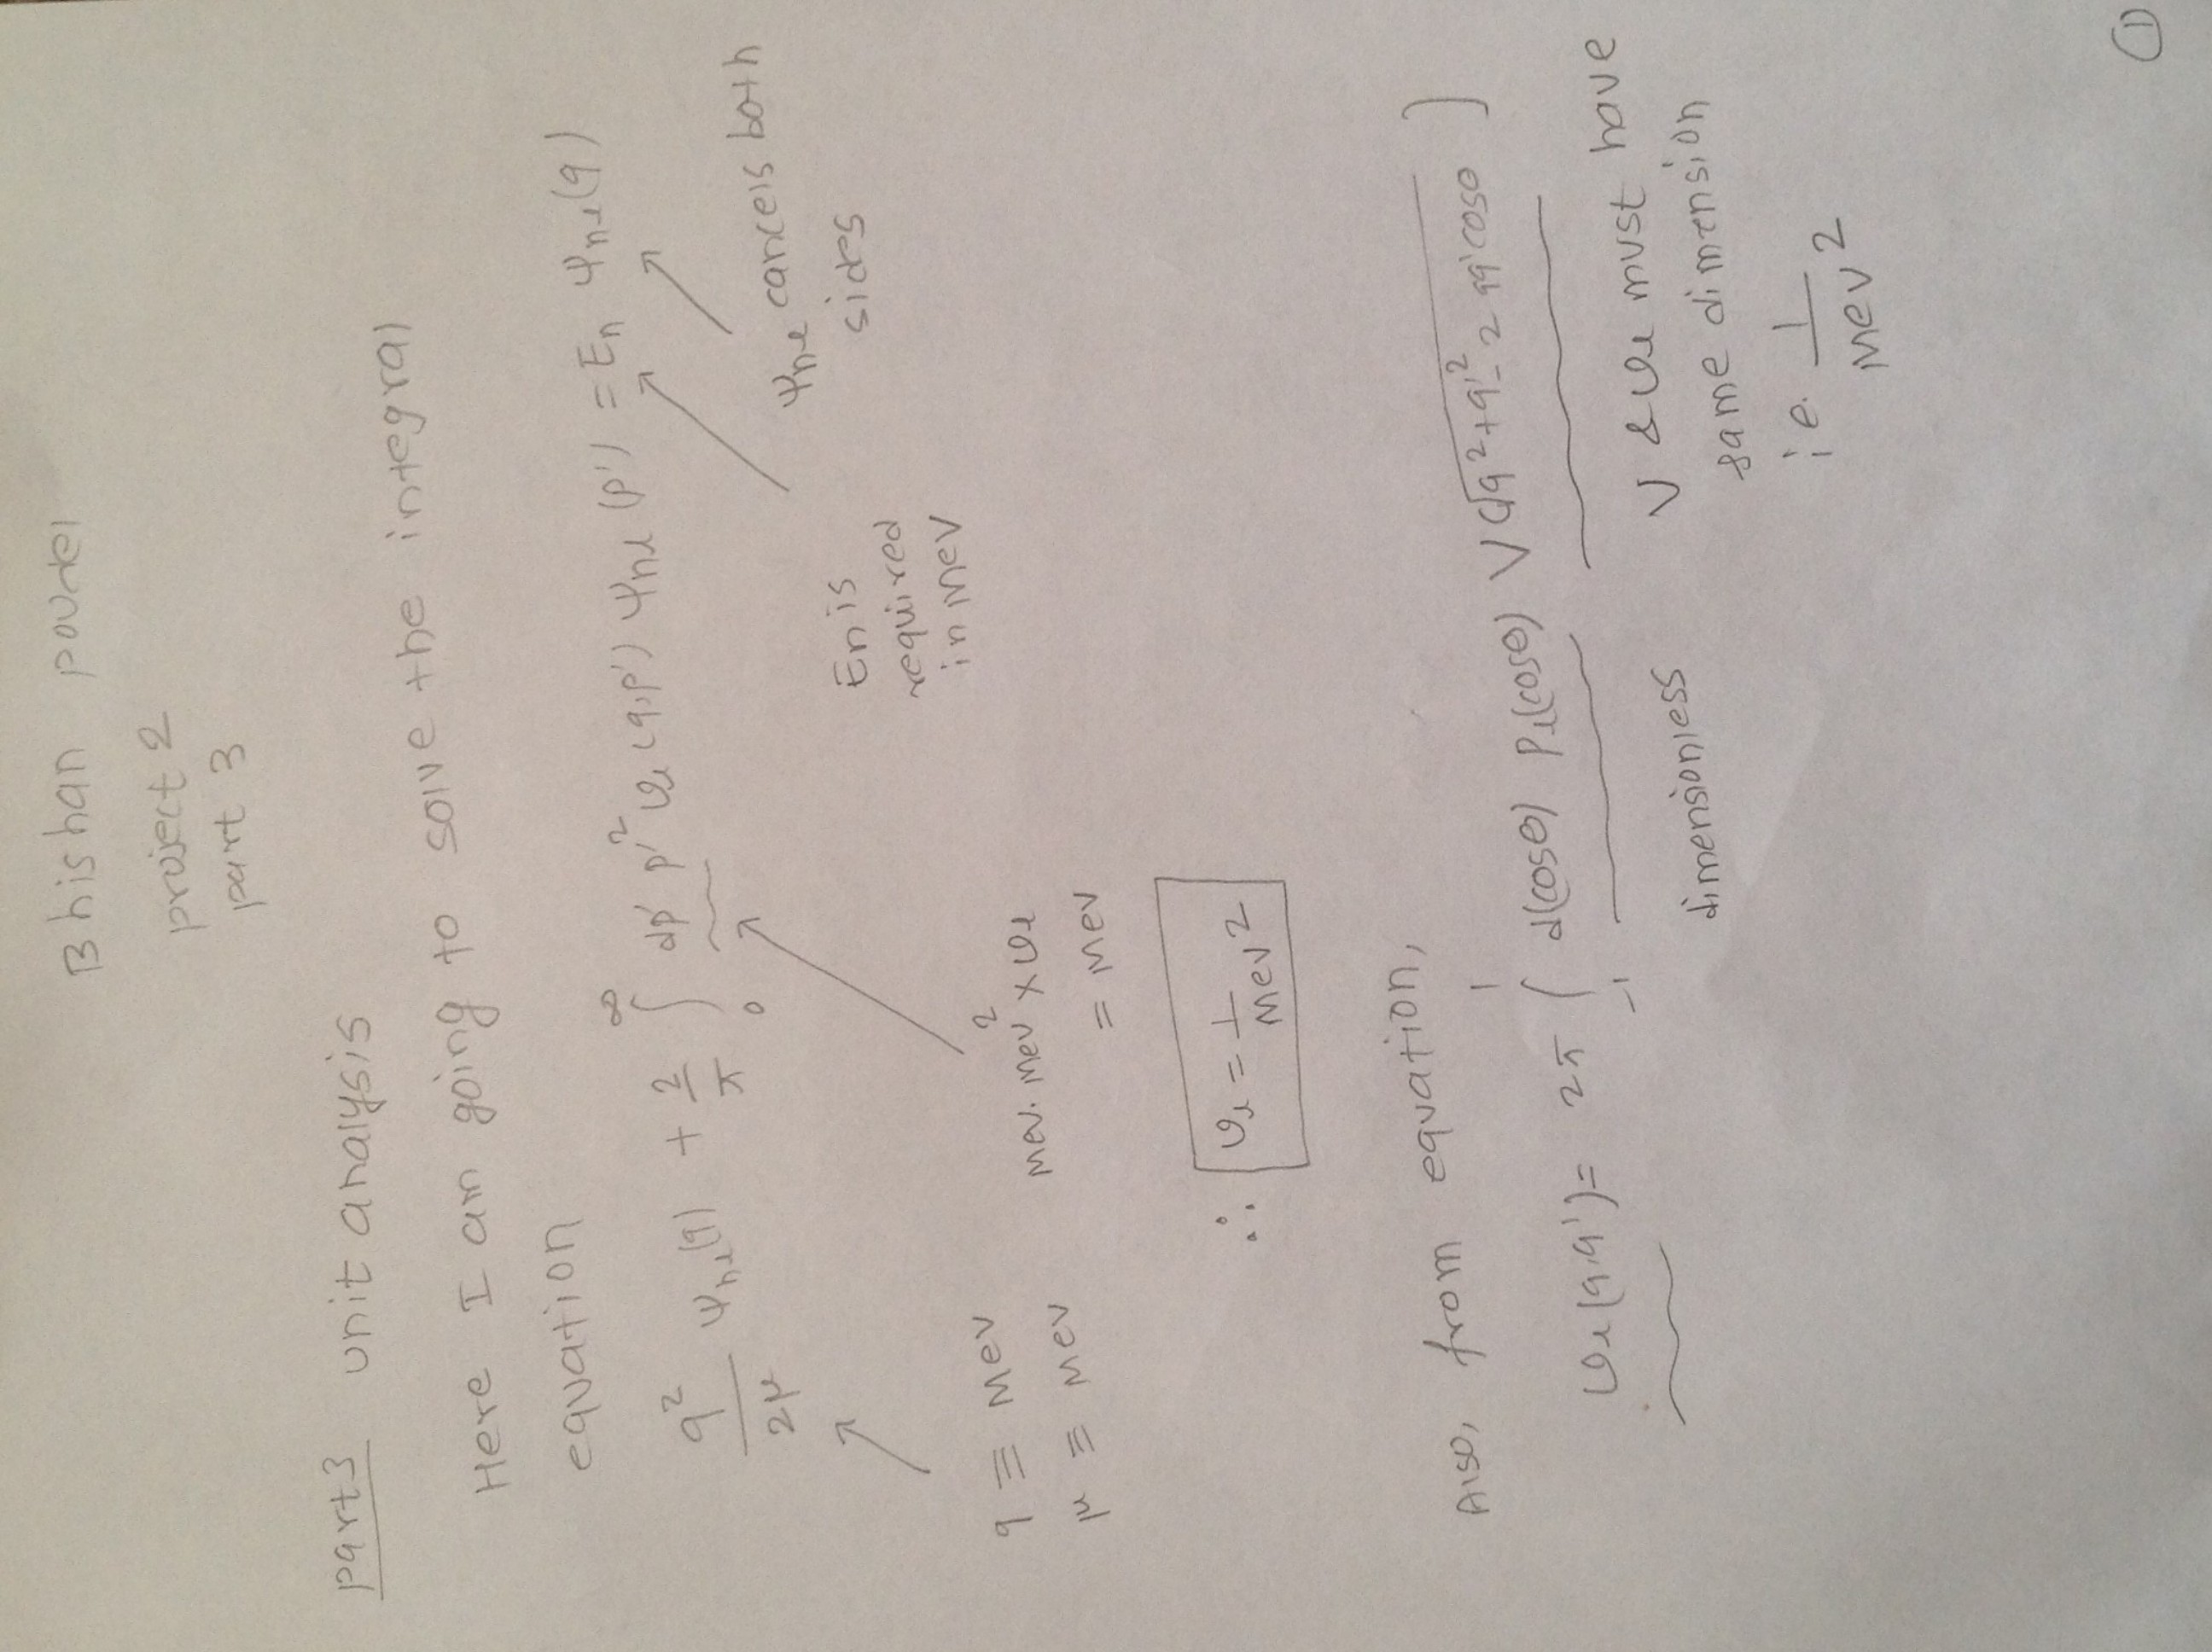 Bhishan poudel
project 2
part 3
part 3 unit analysis
Here I am going to solve the integral
equation
q²/2μ ψnl(q) + 2/π ∫₀^∞ dp' p'² vl(q,p') ψnl(p') = En ψnl(q)
ψnl cancels both
sides
En is
required
in Mev
q ≡ Mev
μ ≡ Mev
Mev. Mev² × vl
= Mev
∴ vl = 1/Mev²
Also, from equation,
vl(q,q') = 2π ∫₋₁^1 d(cosθ) Pl(cosθ) V(√q²+q'²-2qq'cosθ]
dimensionless
V & vl must have
same dimension
i.e. 1/Mev²
1